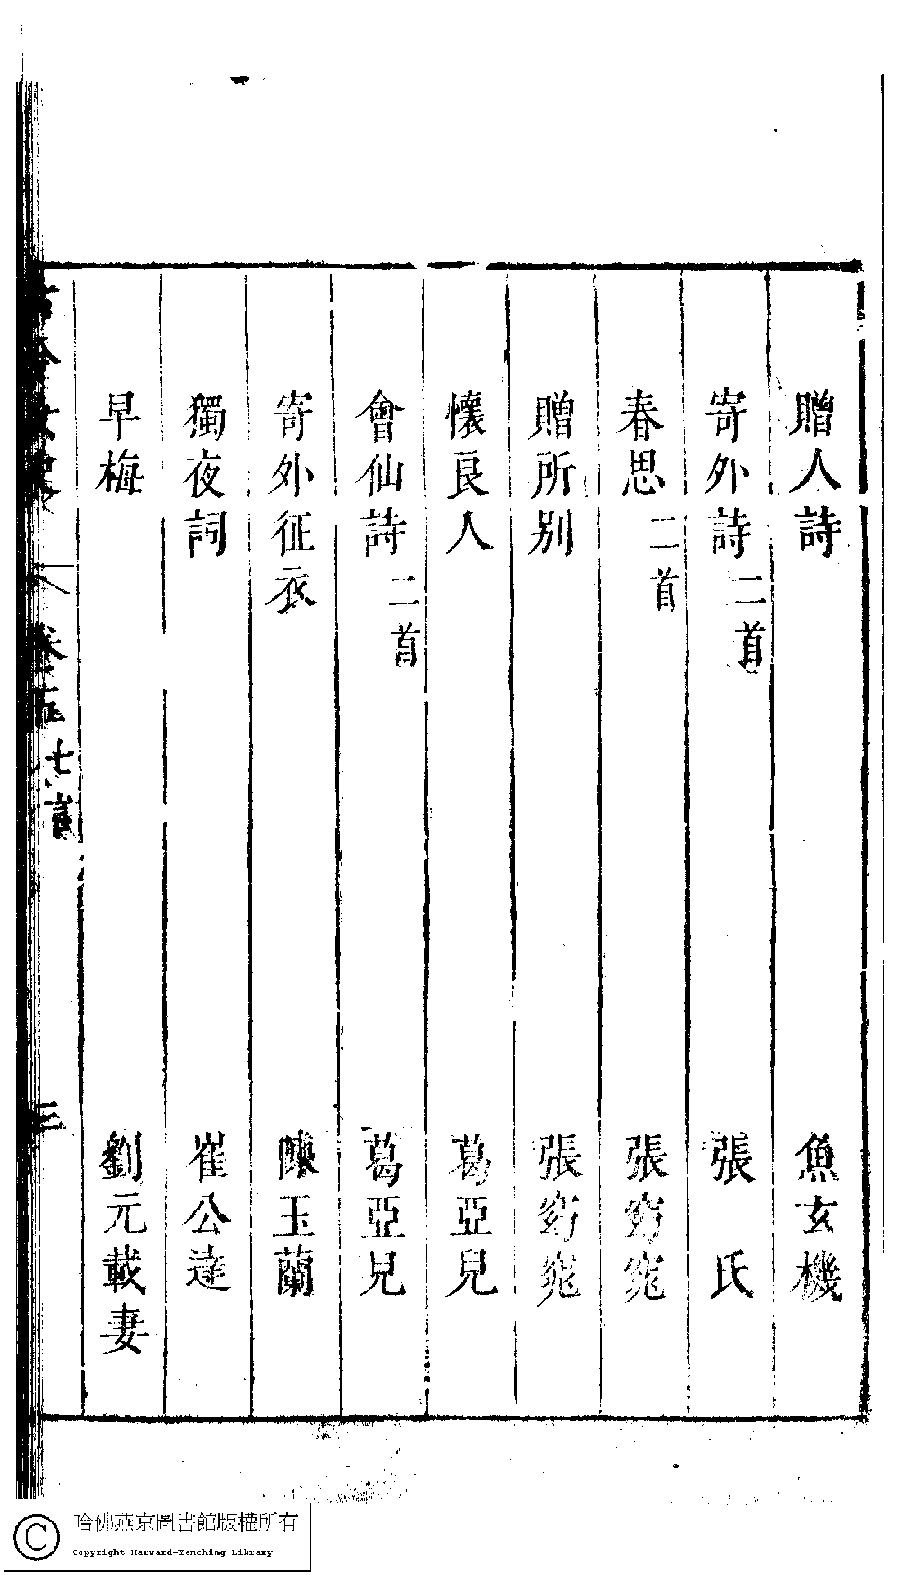 贈人詩 魚玄機
寄外詩二首 張氏
春思二首 張窈窕
贈所別 張窈窕
懷良人 葛亞兒
會仙詩二首 葛亞兒
寄外征衣 陳玉蘭
獨夜詞 崔公達
早梅 劉元載妻
卷五 三
哈佛燕京圖書館版權所有
Copyright Harvard-Yenching Library